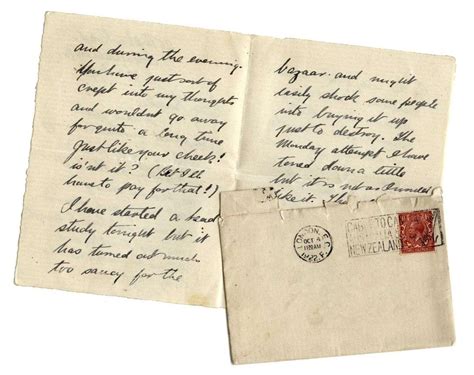 and during the evening.
You have just sort of
crept into my thoughts
and wouldnt go away
for quite a long time
Just like your cheek!
is'nt it? (Bet I'll
have to pay for that!)
I have started a head
study tonight but it
has turned out much
too saucy for the
bazaar and might
easily shock some people
into buying it up
just to destroy. The
Monday attempt I have
toned down a little
but it is not as I
like it. The
LONDON. E.C.
OCT 4
1922
NEW ZEALAND